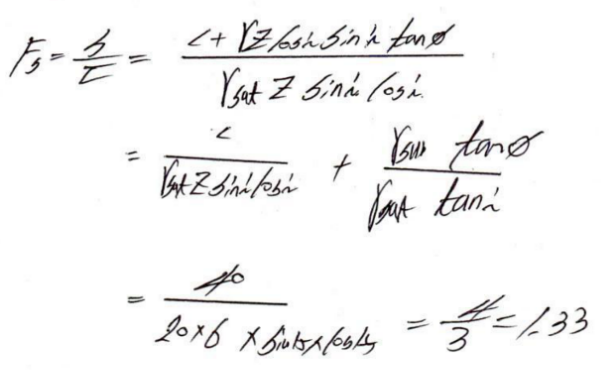 Fs = S/τ = C + γZ cosi sini tanφ / γsat Z sini cosi
= C / γsat Z sini cosi + γsub tanφ / γsat tani
= 40 / 20×6 × sin15 × cos15 = 4/3 = 1.33